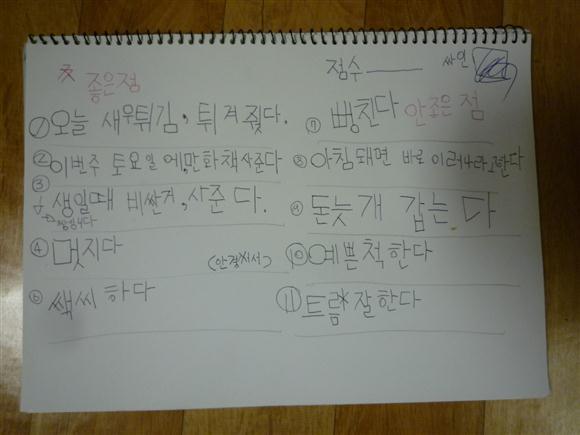 좋은점
점수 싸인
① 오늘 새우튀김, 튀겨 줬다.
② 이번주 토요일에, 만화책 사준다
③ 생일때 비싼거, 사준다.
④ 멋지다
(안경써서)
⑥ 쌕씨하다
⑦ 뻥친다 안좋은점
⑧ 아침돼면 바로 이러나라고한다
⑨ 돈늦개 갑는다
⑩ 예쁜척한다
⑪ 트름 잘한다